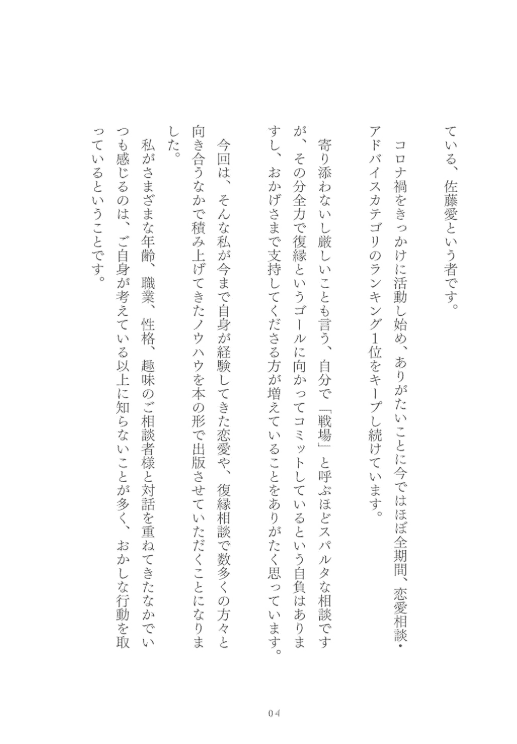 ている、佐藤愛という者です。
コロナ禍をきっかけに活動し始め、ありがたいことに今ではほぼ全期間、恋愛相談・
アドバイスカテゴリのランキング1位をキープし続けています。
寄り添わないし厳しいことも言う、自分で「戦場」と呼ぶほどスパルタな相談です
が、その分全力で復縁というゴールに向かってコミットしているという自負はありま
すし、おかげさまで支持してくださる方が増えていることをありがたく思っています。
今回は、そんな私が今まで自身が経験してきた恋愛や、復縁相談で数多くの方々と
向き合うなかで積み上げてきたノウハウを本の形で出版させていただくことになりま
した。
私がさまざまな年齢、職業、性格、趣味のご相談者様と対話を重ねてきたなかでい
つも感じるのは、ご自身が考えている以上に知らないことが多く、おかしな行動を取
っているということです。
04